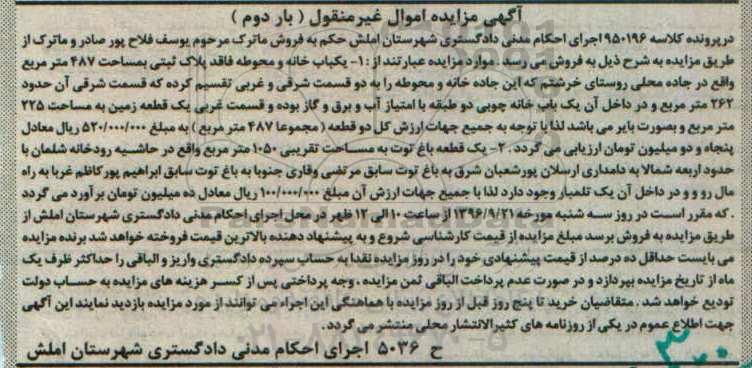 آگهی مزایده اموال غیرمنقول ( بار دوم )
درپرونده کلاسه ۹۵۰۱۹۶ اجرای احکام مدنی دادگستری شهرستان املش حکم به فروش ماترک مرحوم یوسف فلاح پور صادر و ماترک از
طریق مزایده به شرح ذیل به فروش می رسد . موارد مزایده عبارتند از : ۱- یکباب خانه و محوطه فاقد پلاک ثبتی بمساحت ۴۸۷ متر مربع
واقع در جاده محلی روستای خرشتم که این جاده خانه و محوطه را به دو قسمت شرقی و غربی تقسیم کرده که قسمت شرقی آن حدود
۲۶۲ متر مربع و در داخل آن یک باب خانه چوبی دو طبقه با امتیاز آب و برق و گاز بوده و قسمت غربی یک قطعه زمین به مساحت ۲۲۵
متر مربع و بصورت بایر می باشد لذا با توجه به جمیع جهات ارزش کل دو قطعه ( مجموعا ۴۸۷ متر مربع ) به مبلغ ۵۲۰/۰۰۰/۰۰۰ ریال معادل
پنجاه و دو میلیون تومان ارزیابی می گردد . ۲- یک قطعه باغ توت به مساحت تقریبی ۱۰۵۰ متر مربع واقع در حاشیه رودخانه شلمان با
حدود اربعه شمالا به دامداری ارسلان پورشعبان شرق به باغ توت سابق مرتضی وقاری جنوبا به باغ توت سابق ابراهیم پورکاظم غربا به راه
مال رو و و در داخل آن یک تلمبار وجود دارد لذا با جمیع جهات ارزش آن مبلغ ۱۰۰/۰۰۰/۰۰۰ ریال معادل ده میلیون تومان برآورد می گردد
. که مقرر است در روز سه شنبه مورخه ۱۳۹۶/۹/۲۱ از ساعت ۱۰ الی ۱۲ ظهر در محل اجرای احکام مدنی دادگستری شهرستان املش از
طریق مزایده به فروش برسد مبلغ مزایده از قیمت کارشناسی شروع و به پیشنهاد دهنده بالاترین قیمت فروخته خواهد شد برنده مزایده
می بایست حداقل ده درصد از قیمت پیشنهادی خود را در روز مزایده نقدا به حساب سپرده دادگستری واریز و الباقی را حداکثر ظرف یک
ماه از تاریخ مزایده بپردازد و در صورت عدم پرداخت الباقی ثمن مزایده ، وجه پرداختی پس از کسر هزینه های مزایده به حساب دولت
تودیع خواهد شد . متقاضیان خرید تا پنج روز قبل از روز مزایده با هماهنگی این اجراء می توانند از مورد مزایده بازدید نمایند این آگهی
جهت اطلاع عموم در یکی از روزنامه های کثیرالانتشار محلی منتشر می گردد .
ح ۵۰۳۶ اجرای احکام مدنی دادگستری شهرستان املش